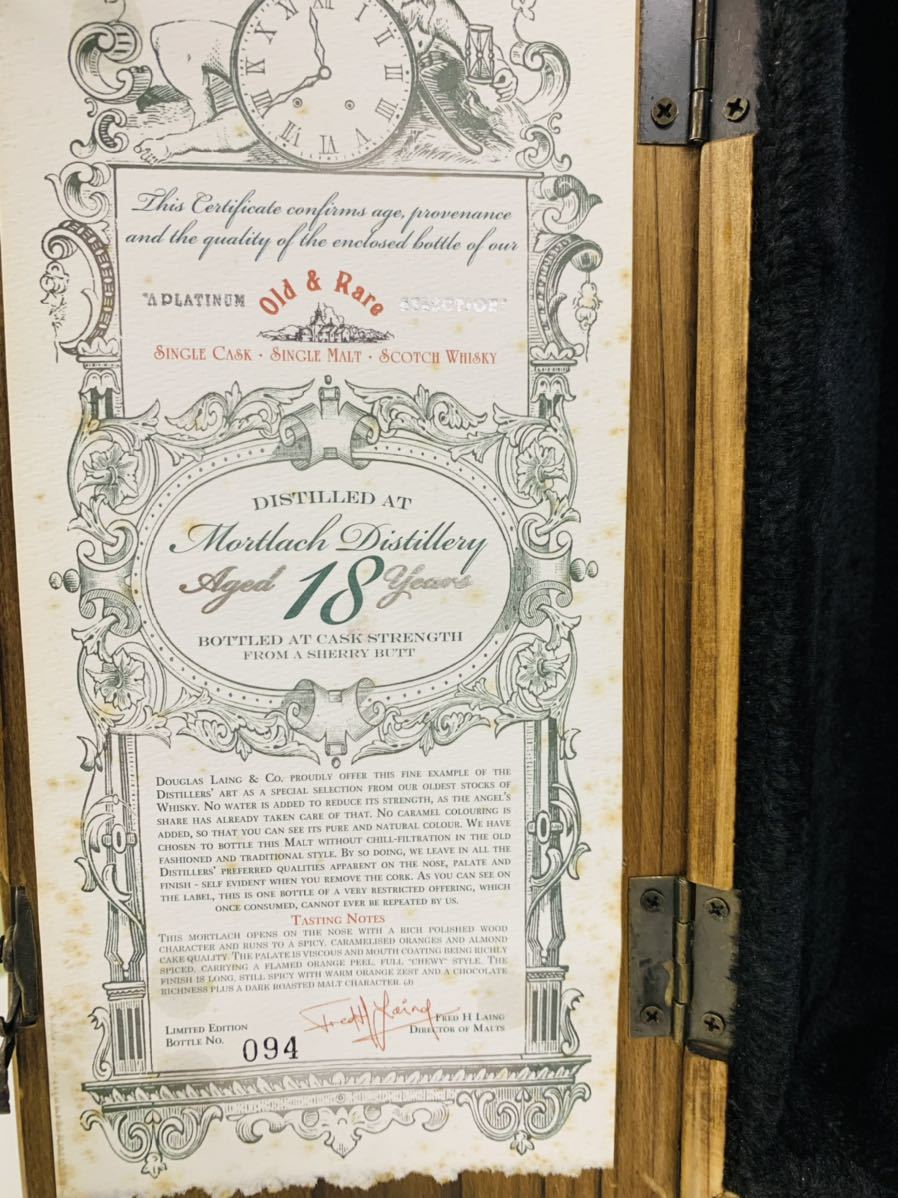 I
III
V
VI
VII
X
XI
This Certificate confirms age, provenance
and the quality of the enclosed bottle of our
"A PLATINUM Old & Rare SELECTION"
SINGLE CASK · SINGLE MALT · SCOTCH WHISKY
DISTILLED AT
Mortlach Distillery
Aged 18 Years
BOTTLED AT CASK STRENGTH
FROM A SHERRY BUTT
DOUGLAS LAING & CO. PROUDLY OFFER THIS FINE EXAMPLE OF THE
DISTILLERS' ART AS A SPECIAL SELECTION FROM OUR OLDEST STOCKS OF
WHISKY. NO WATER IS ADDED TO REDUCE ITS STRENGTH, AS THE ANGEL'S
SHARE HAS ALREADY TAKEN CARE OF THAT. NO CARAMEL COLOURING IS
ADDED, SO THAT YOU CAN SEE ITS PURE AND NATURAL COLOUR. WE HAVE
CHOSEN TO BOTTLE THIS MALT WITHOUT CHILL-FILTRATION IN THE OLD
FASHIONED AND TRADITIONAL STYLE. BY SO DOING, WE LEAVE IN ALL THE
DISTILLERS' PREFERRED QUALITIES APPARENT ON THE NOSE, PALATE AND
FINISH - SELF EVIDENT WHEN YOU REMOVE THE CORK. AS YOU CAN SEE ON
THE LABEL, THIS IS ONE BOTTLE OF A VERY RESTRICTED OFFERING, WHICH
ONCE CONSUMED, CANNOT EVER BE REPEATED BY US.
TASTING NOTES
THIS MORTLACH OPENS ON THE NOSE WITH A RICH POLISHED WOOD
CHARACTER AND RUNS TO A SPICY, CARAMELISED ORANGES AND ALMOND
CAKE QUALITY. THE PALATE IS VISCOUS AND MOUTH COATING BEING RICHLY
SPICED, CARRYING A FLAMED ORANGE PEEL, FULL "CHEWY" STYLE. THE
FINISH IS LONG, STILL SPICY WITH WARM ORANGE ZEST AND A CHOCOLATE
RICHNESS PLUS A DARK ROASTED MALT CHARACTER. (J)
Fred H Laing
FRED H LAING
DIRECTOR OF MALTS
LIMITED EDITION
BOTTLE NO. 094